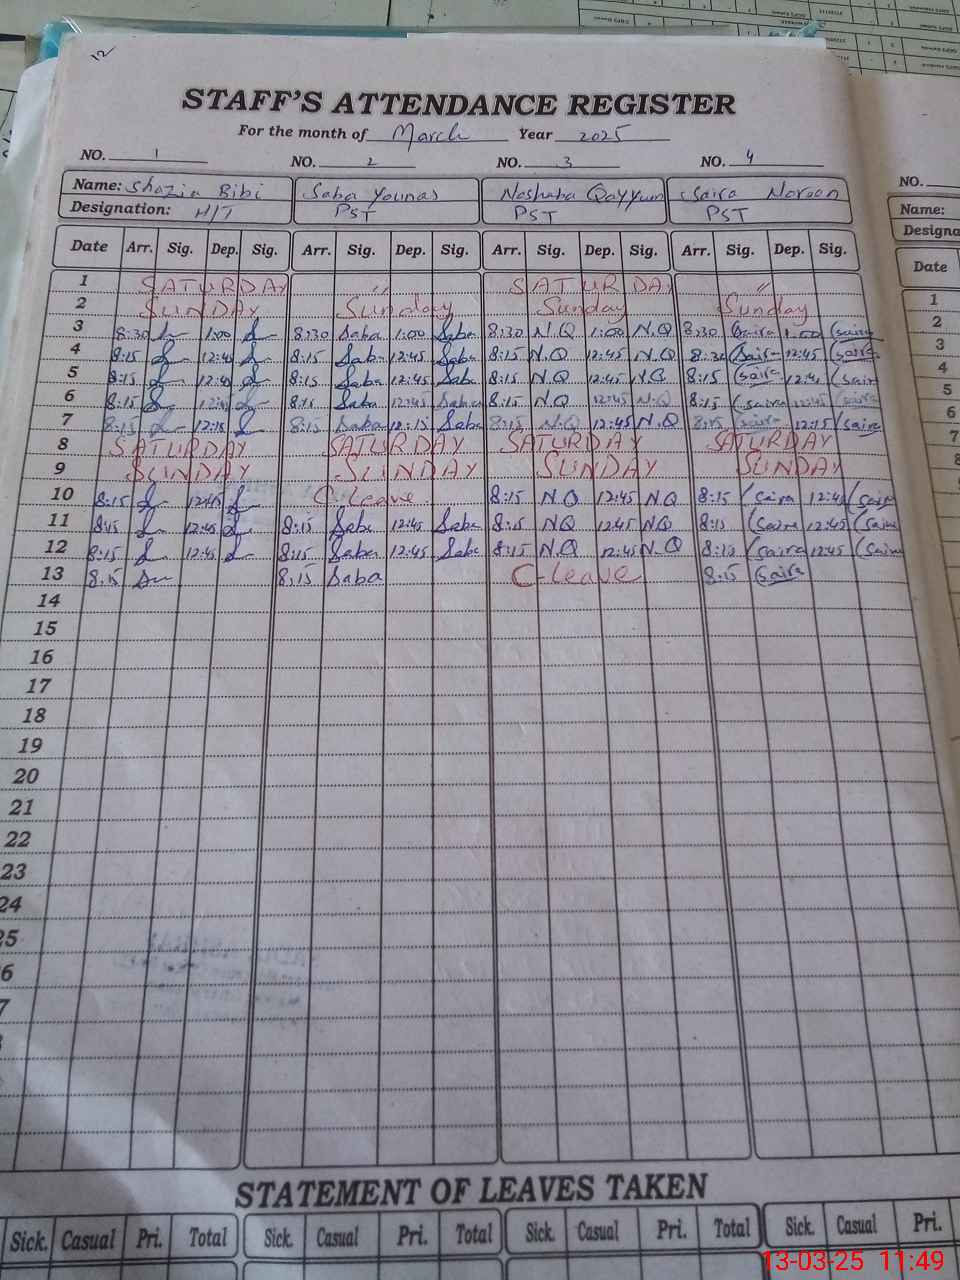 12
STAFF'S ATTENDANCE REGISTER
For the month of March Year 2025
NO. 1 NO. 2 NO. 3 NO. 4 NO.
Name: Shazia Bibi Saba Younas Noshaba Qayyum Saira Noreen Name:
Designation: H/T PST PST PST Designa
Date Arr. Sig. Dep. Sig. Arr. Sig. Dep. Sig. Arr. Sig. Dep. Sig. Arr. Sig. Dep. Sig. Date
1 SATURDAY " SATURDAY " 1
2 SUNDAY Sunday Sunday Sunday 2
3 8:30 1:00 8:30 Saba 1:00 Saba 8:30 N.Q 1:00 N.Q 8:30 Saira 1:00 Saira 3
4 8:15 12:45 8:15 Saba 12:45 Saba 8:15 N.Q 12:45 N.Q 8:30 Saira 12:45 Saira 4
5 8:15 12:45 8:15 Saba 12:45 Saba 8:15 N.Q 12:45 N.Q 8:15 Saira 12:45 Saira 5
6 8:15 12:45 8:15 Saba 12:45 Saba 8:15 N.Q 12:45 N.Q 8:15 Saira 12:45 Saira 6
7 8:15 12:15 8:15 Saba 12:15 Saba 8:15 N.Q 12:45 N.Q 8:15 Saira 12:15 Saira 7
8 SATURDAY SATURDAY SATURDAY SATURDAY
9 SUNDAY SUNDAY SUNDAY SUNDAY 9
10 8:15 12:45 C.leave 8:15 N.Q 12:45 N.Q 8:15 Saira 12:45 Saira 10
11 8:15 12:45 8:15 Saba 12:45 Saba 8:15 N.Q 12:45 N.Q 8:15 Saira 12:45 Saira 11
12 8:15 12:45 8:15 Saba 12:45 Saba 8:15 N.Q 12:45 N.Q 8:15 Saira 12:45 Saira 12
13 8:15 8:15 Saba C-leave 8:15 Saira
14
15
16
17
18
19
20
21
22
23
24
25
6
7
STATEMENT OF LEAVES TAKEN
Sick. Casual Pri. Total Sick. Casual Pri. Total Sick. Casual Pri. Total Sick. Casual Pri.
13-03-25 11:49